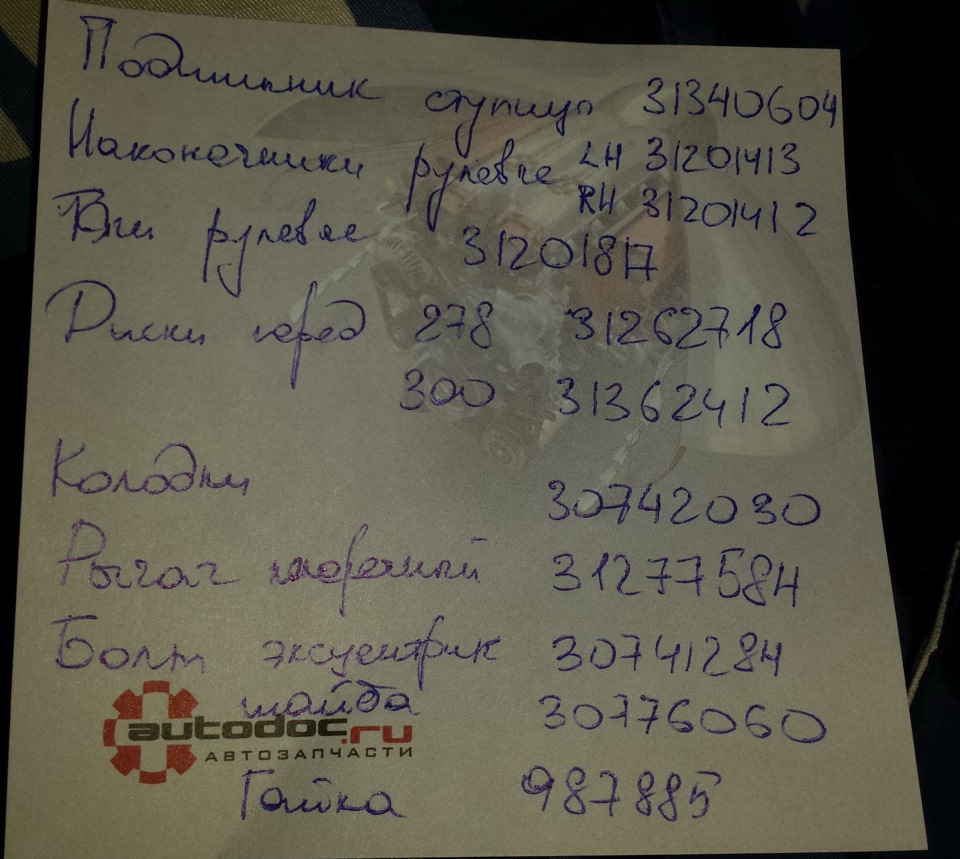 Подшипник ступицы 31340604
Наконечники рулевые LH 31201413
RH 31201412
Тяги рулевые 31201817
Диски перед 278 31262718
300 31362412
Колодки 30742030
Рычаг поперечный 31277584
Болт эксцентрик 30741284
шайба 30776060
autodoc.ru
АВТОЗАПЧАСТИ
Гайка 987885